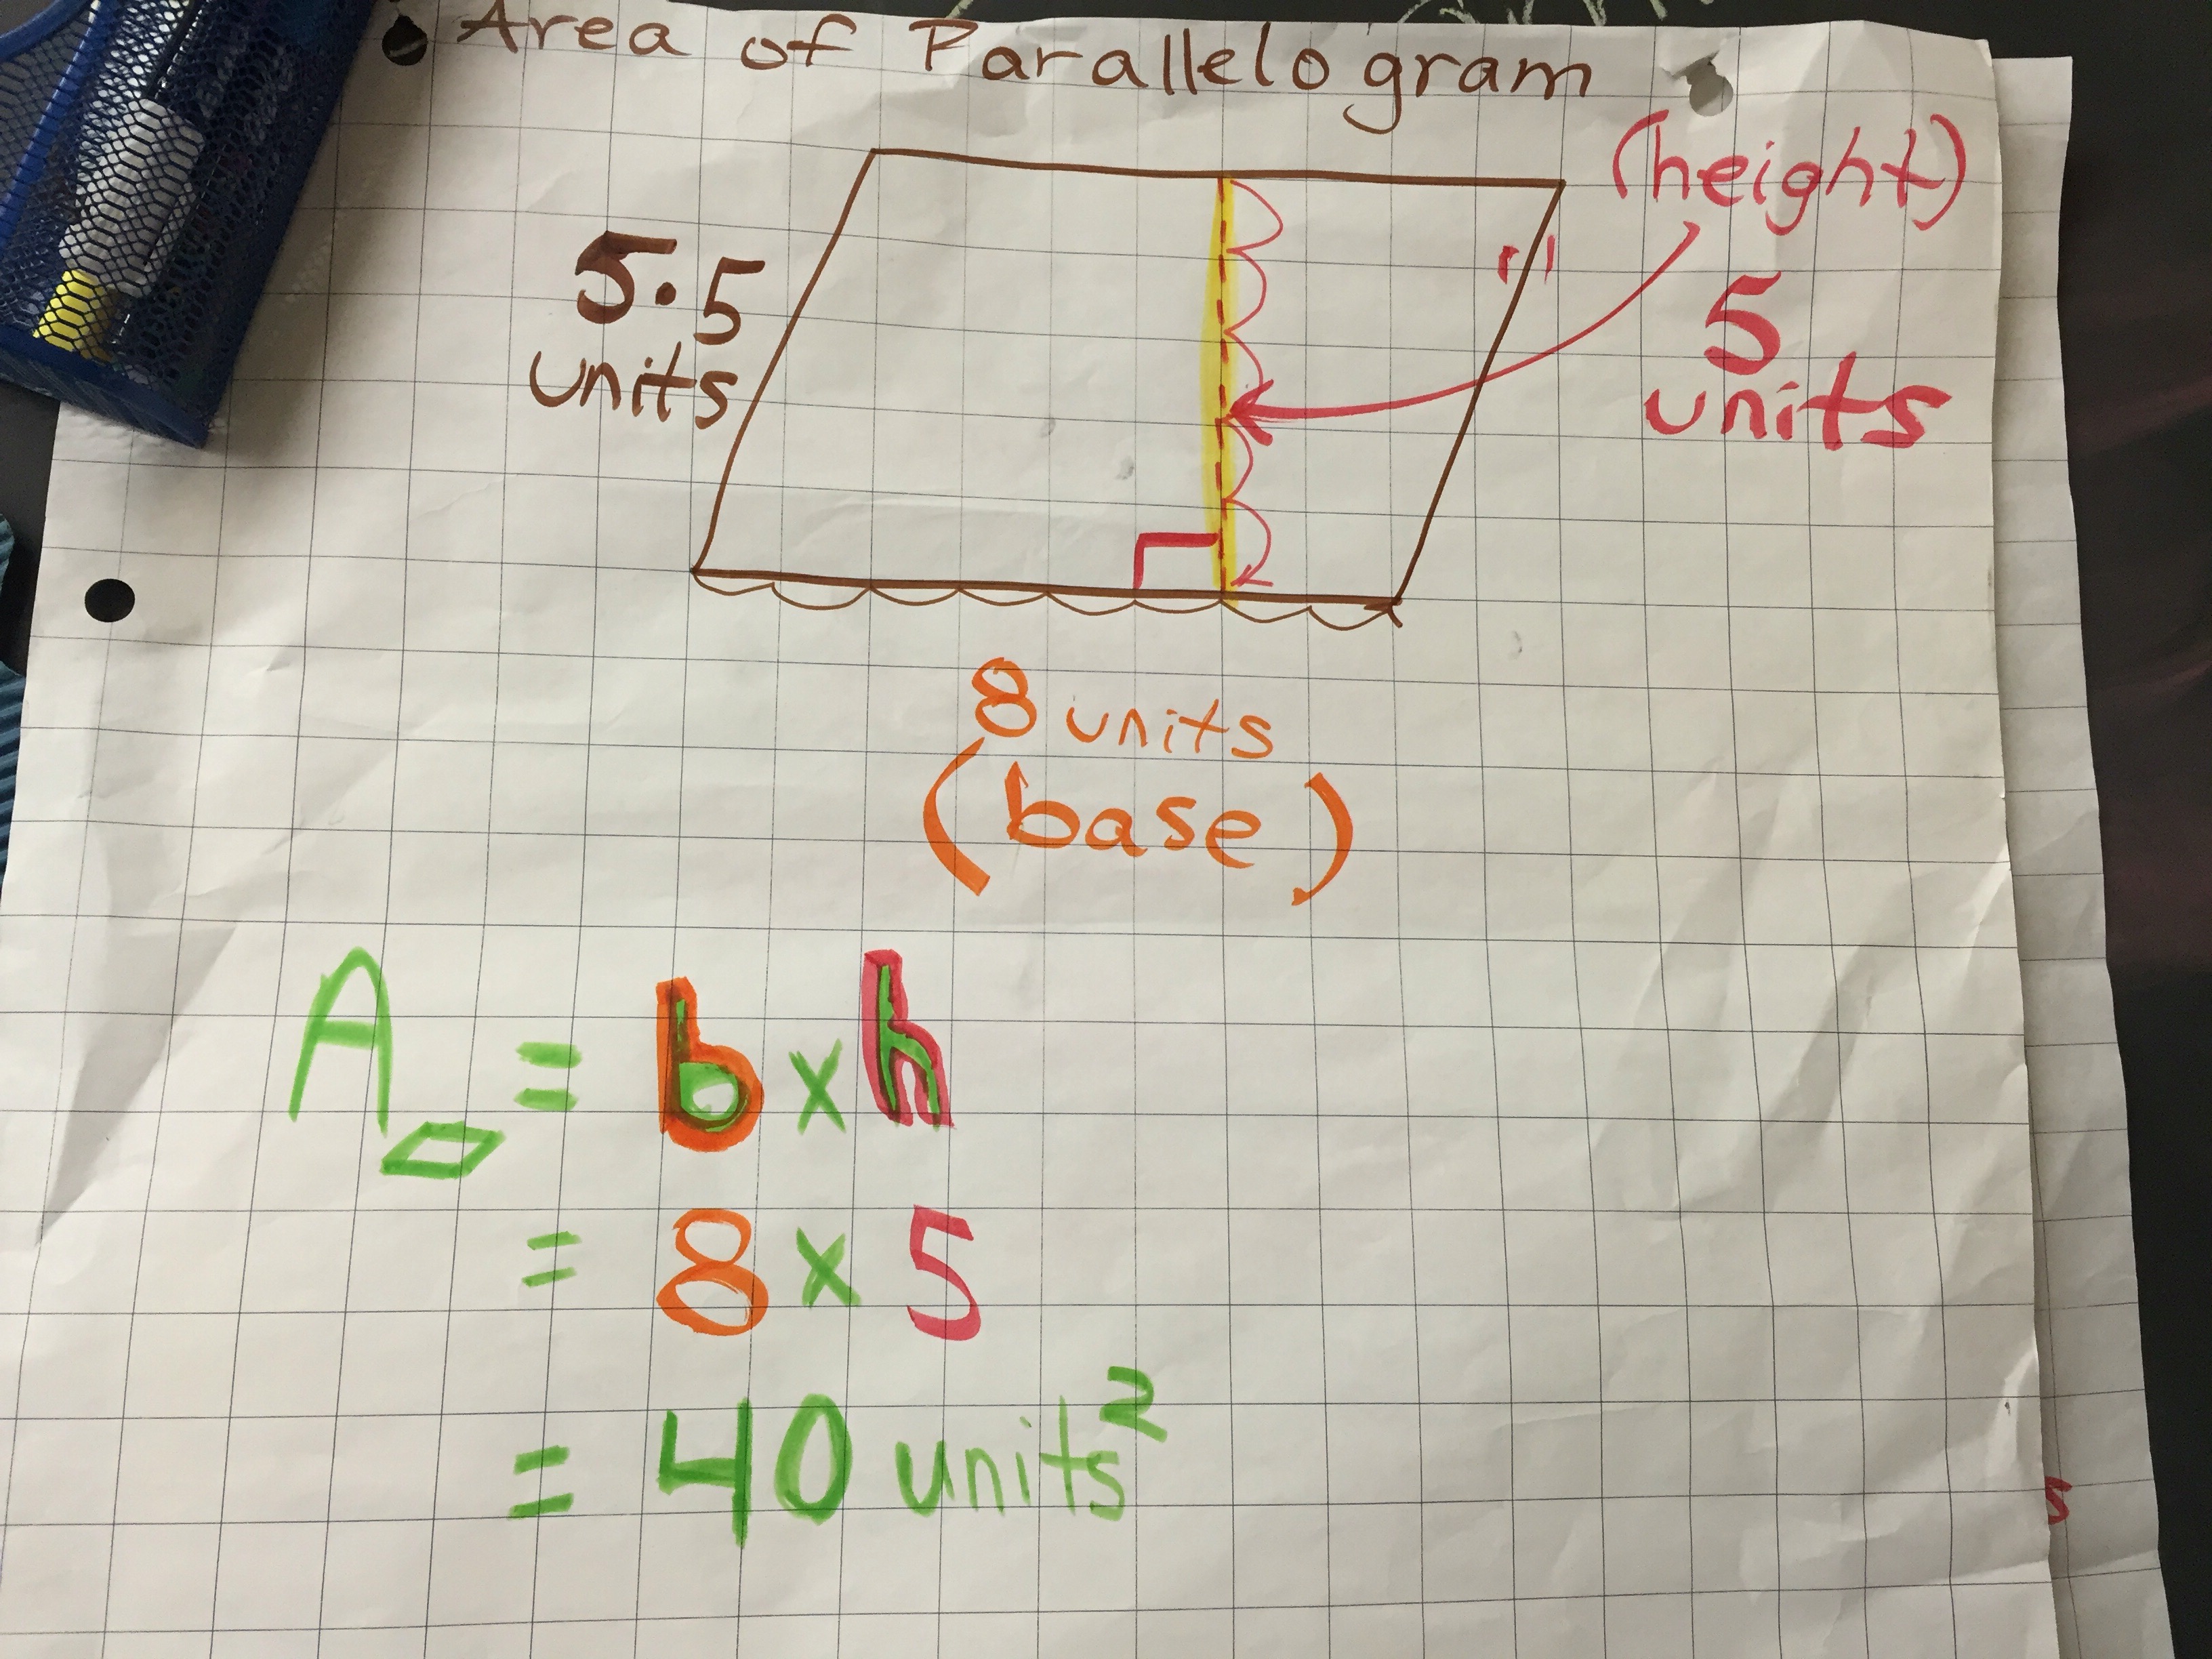 Area of Parallelogram
(height)
5.5
units
5
units
8 units
(base)
A▱ = b x h
= 8 x 5
= 40 units²
s